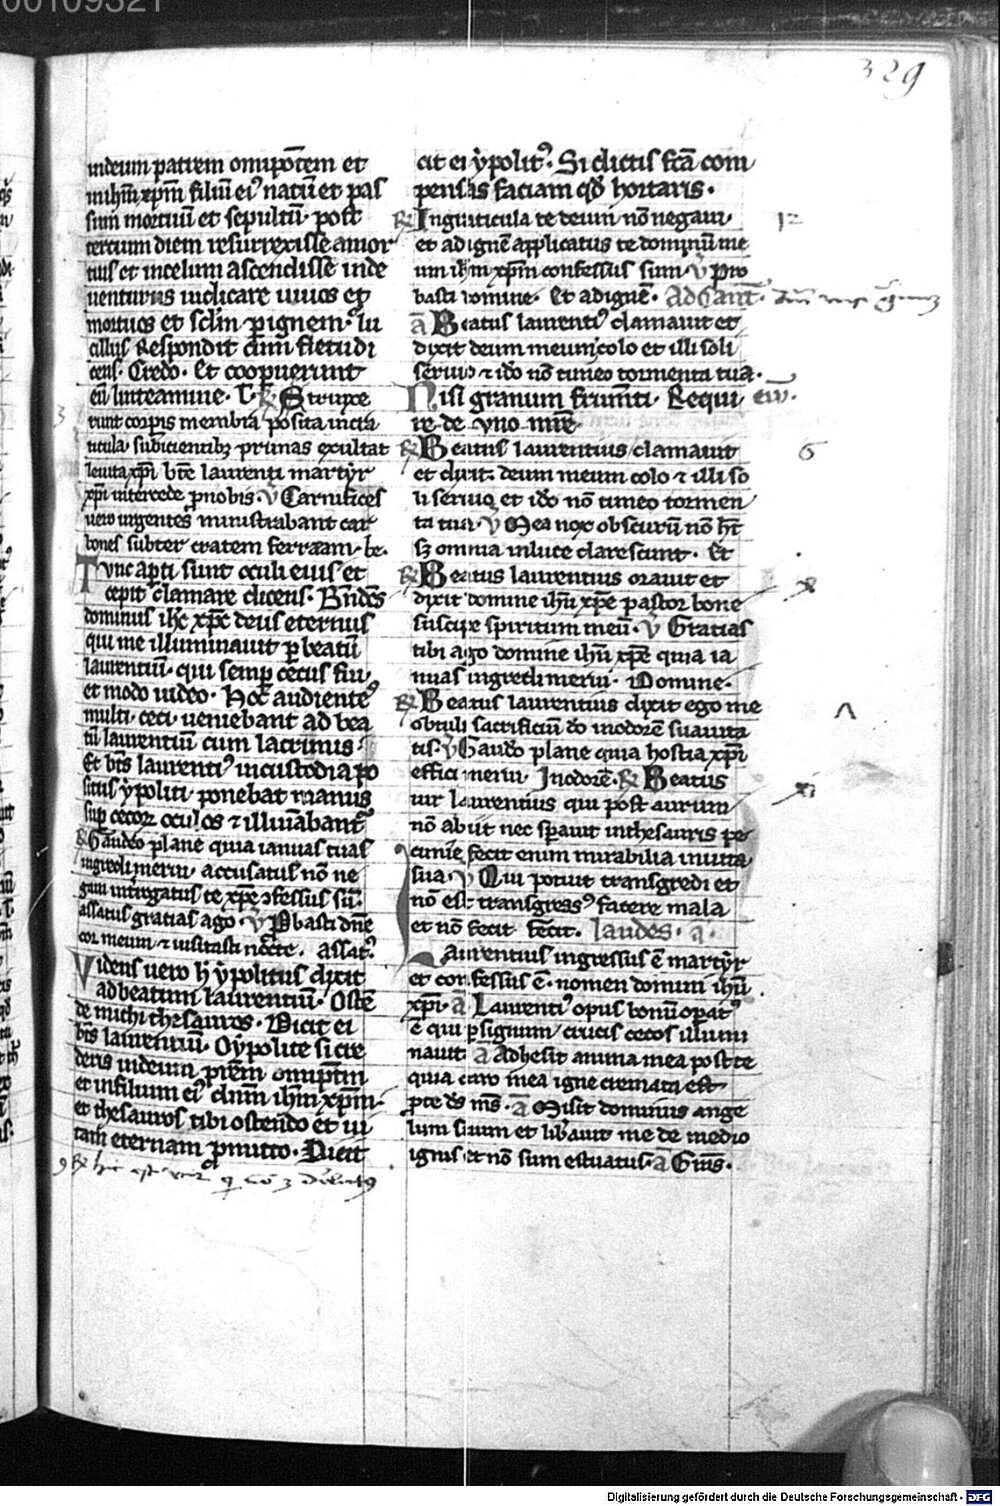 329
in deum patrem omnipotẽtem et
in ihm̃ xp̃m filiũ eiꝰ natũ et pas
sum mortuũ et sepultũ· post
tercium diem resurrexisse a mor
tuis et in celum ascendisse inde
venturus iudicare vivos et
mortuos et sc̃lm p ignem· lu
cillus Respondit cum fletu di
cens· Credo· Et cooperuerunt
eũ linteamine· T· R Strinxe
runt corporis membra posita in cra
ticula· subicientibꝫ prunas exultat
levita xp̃i bt̃e laurenti martyr
xp̃i intercede p nobis· v Carnifices
vero urgentes ministrabant car
bones subter cratem ferream· be·
Tunc apti sunt oculi eius et
cepit clamare dicens· Bn̄dc̄s
dominus ihc̄ xp̄c deus eternus
qui me illuminavit p beatũ
laurentiũ· qui semp cecus fui·
et modo video· Hoc audientes
multi· ceci· veniebant ad bea
tũ laurentiũ cum lacrimis·
Et bt̃s laurentiꝰ in custodia po
situs ypoliti· ponebat manus
sup cecoꝝ oculos ⁊ illuĩabantꝰ
R Gaudeo plane quia ianuas tuas
ingredi merui· accusatus nõ ne
gavi int̃rogatus te xp̃e ꝯfessus sũ·
assatus gratias ago· v Pbasti dñe
cor meum ⁊ visitasti nocte· assatꝰ·
Videns vero h̃ ypolitus dixit
ad beatum laurentiũ· Ostẽ
de michi thesauros· Dicit ei
bt̃s laurentiũ· O ypolite si cre
deris in deum pr̃em omnipt̃m
et in filium eiꝰ dñm ihm̃ xp̃m·
et thesauros tibi ostendo et vi
tam eternam pmitto· Dicit
cit ei ypolitꝰ· Si dictis fc̃a com
pensas faciam qd̃ hortaris·
R In craticula te deum nõ negavi
et ad ignẽ applicatus te dominũ me
um ihm̃ xp̃m confessus sum· v Pro
basti domine· Et ad ignẽ· Ad Cant̃·
ã Beatus laurentiꝰ clamavit et
dixit deum meum colo et illi soli
servio ⁊ ido nõ timeo tormenta tua·
Nisi granum frumt̃i· Requi
re de uno m̃re
R Beatus laurentius clamavit
et dixit· deum meum colo ⁊ illi so
li servio et ido nõ timeo tormen
ta tua· v Mea nox obscurũ nõ ht̃
sꝫ omnia in luce clarescunt· Et
R Beatus laurentius oravit et
dixit domine ihũ xp̃e pastor bone
suscipe spiritum meũ· v Gratias
tibi ago domine ihũ xp̃e quia ia
nuas ingredi merui· Domine·
R Beatus laurentius dixit ego me
obtuli sacrificiũ do in odorẽ suavita
tis· v Gaudo plane quia hostia xp̃i
effici merui· In odorẽ· R Beatus
vir laurentius qui post aurum
nõ abiit nec spavit in thesauris pe
cunie fecit enim mirabilia in vita
sua· v Qui potuit transgredi et
nõ est transgressꝰ facere mala
et nõ fecit· fecit· laudes· a·
Laurentius ingressus ẽ martyr
et confessus ẽ· nomen domini ihũ
xp̃i· ã Laurentiꝰ opus bonũ opatꝰ
ẽ qui p signum crucis cecos illumi
navit ã Adhesit anima mea post te
quia caro mea igne cremata est
p te ds ms̃· ã Misit dominus ange
lum suum et libavit me de medio
ignis· et nõ sum estuatus· ã Gr̃ias·
12
6
xi
Digitalisierung gefördert durch die Deutsche Forschungsgemeinschaft - DFG